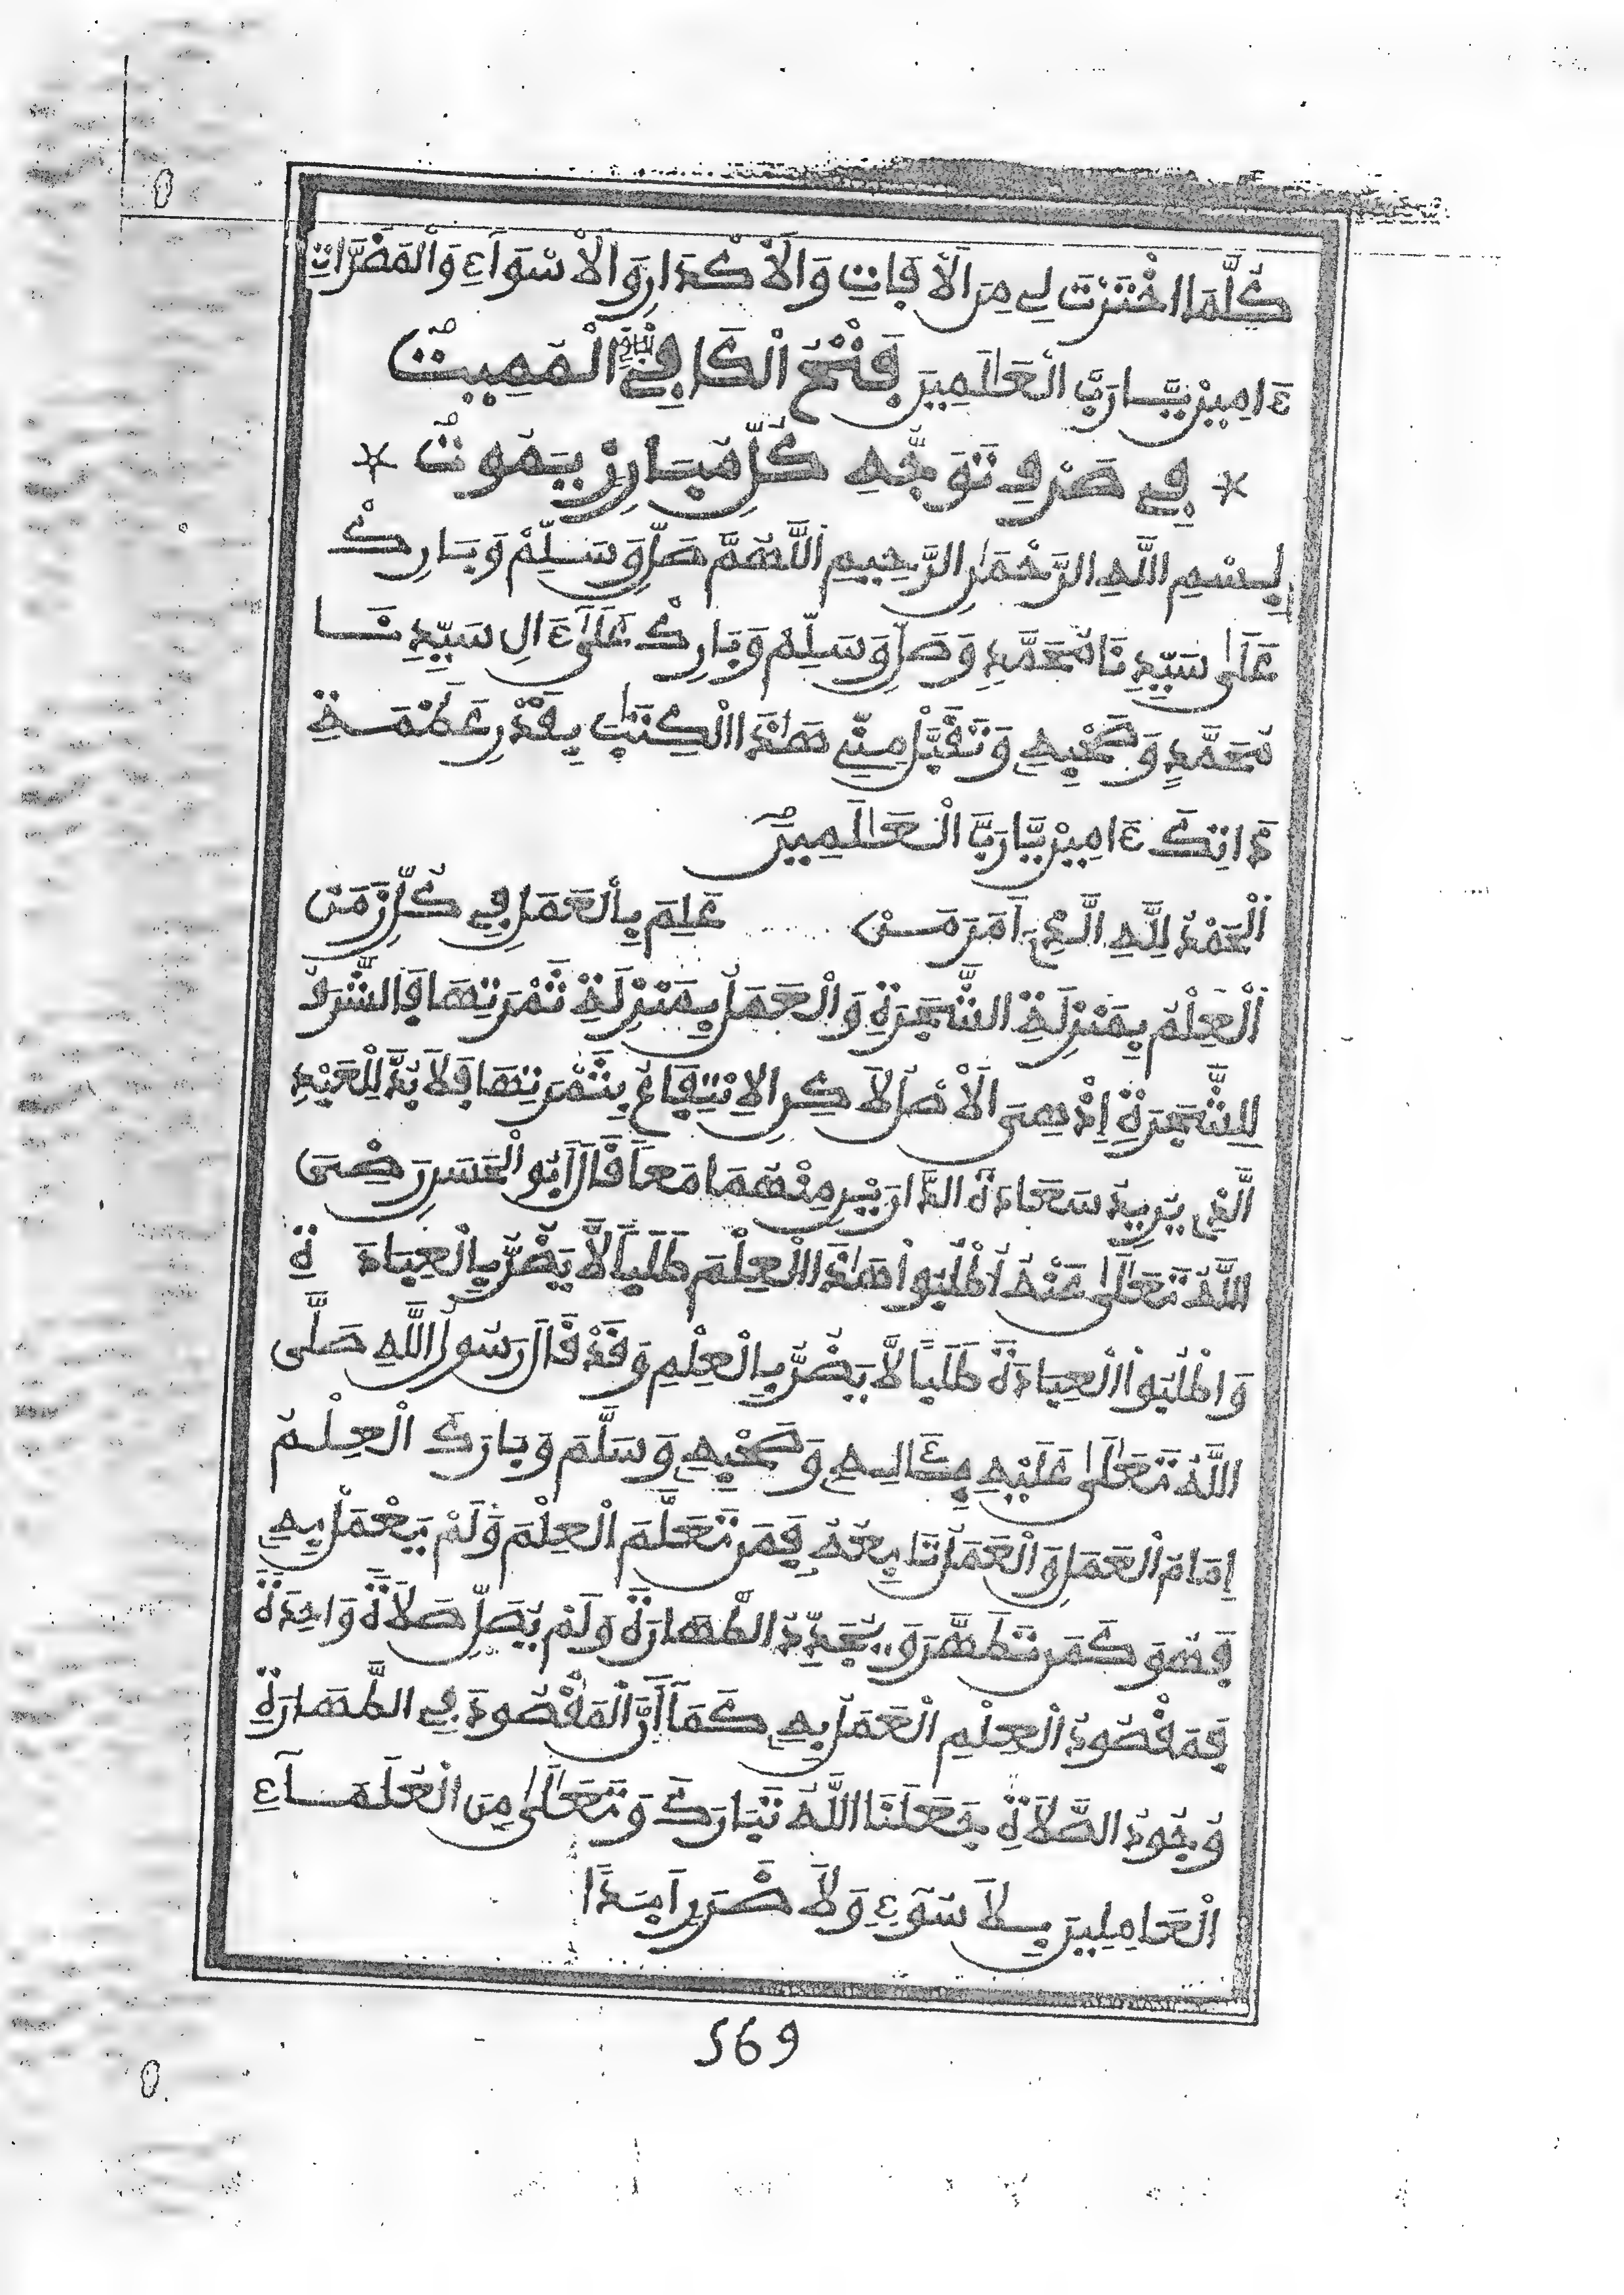 كُلَّمَا اخْتَرْتَ لِي مِنَ الْآفَاتِ وَالْأَكْدَارِ وَالْأَسْوَاءِ وَالْمَضَرَّاتِ
ءَامِينْ يَّارَبَّ الْعَالَمِينَ فَتْحُ الْكَافِي الْمُمِيتْ
* فِي صَرْفِ تَوَجُّهِ كُلِّ مُبَارِزٍ يَمُوتْ *
بِسْمِ اللَّهِ الرَّحْمَٰنِ الرَّحِيمِ اللَّهُمَّ صَلِّ وَسَلِّمْ وَبَارِكْ
عَلَىٰ سَيِّدِنَا مُحَمَّدٍ وَصَلِّ وَسَلِّمْ وَبَارِكْ عَلَىٰ ءَالِ سَيِّدِنَا
مُحَمَّدٍ وَصَحْبِهِ وَتَقَبَّلْ مِنِّي هَٰذَا الْكِتَٰبَ بِقَدْرِ عَظَمَةِ
ذَاتِكَ ءَامِينْ يَّارَبَّ الْعَٰلَمِينَ
اَلْحَمْدُ لِلَّهِ الَّذِي أَمَرَ مَنْ عَلِمَ بِالْعَمَلِ فِي كُلِّ زَمَنْ
اَلْعِلْمُ بِمَنْزِلَةِ الشَّجَرَةِ وَالْعَمَلُ بِمَنْزِلَةِ ثَمْرَتِهَا فَالشَّرَفُ
لِلشَّجَرَةِ إِذْ هِيَ الْأَصْلُ لَٰكِنِ الْاِنْتِفَاعُ بِثَمْرَتِهَا فَلَا بُدَّ لِلْعَبْدِ
الَّذِي يُرِيدُ سَعَادَةَ الدَّارَيْنِ مِنْهُمَا مَعًا قَالَ أَبُو الْحَسَنِ رَضِيَ
اللَّهُ تَعَالَىٰ عَنْهُ اُطْلُبُوا هَٰذَا الْعِلْمَ طَلَبًا لَّا يَضُرُّ بِالْعِبَادَةِ
وَاطْلُبُوا الْعِبَادَةَ طَلَبًا لَّا يَضُرُّ بِالْعِلْمِ وَقَدْ قَالَ رَسُولُ اللَّهِ صَلَّى
اللَّهُ تَعَالَىٰ عَلَيْهِ بِـَٔالِهِ وَصَحْبِهِ وَسَلَّمَ وَبَارَكَ الْعِلْمُ
إِمَامُ الْعَمَلِ وَالْعَمَلُ تَابِعُهُ فَمَن تَعَلَّمَ الْعِلْمَ وَلَمْ يَعْمَلْ بِهِ
فَهُوَ كَمَن تَطَهَّرَ وَيُجَدِّدُ الطَّهَارَةَ وَلَمْ يُصَلِّ صَلَاةً وَاحِدَةً
فَمَقْصُودُ الْعِلْمِ الْعَمَلُ بِهِ كَمَا أَنَّ الْمَقْصُودَ فِي الطَّهَارَةِ
وُجُودُ الصَّلَاةِ جَعَلَنَا اللَّهُ تَبَارَكَ وَتَعَالَىٰ مِنَ الْعُلَمَاءِ
الْعَامِلِينَ بِلَا سُوءٍ وَلَا ضَرَرٍ أَبَدًا
569